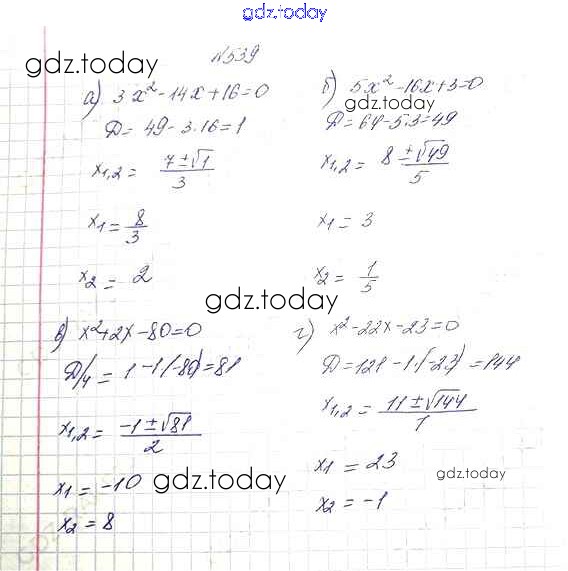 gdz.today
№539
gdz.today
а) 3x² - 14x + 16 = 0
Д = 49 - 3·16 = 1
x₁,₂ = (7 ± √1)/3
x₁ = 8/3
x₂ = 2
б) 5x² - 16x + 3 = 0
gdz.today
Д = 64 - 5·3 = 49
x₁,₂ = (8 ± √49)/5
x₁ = 3
x₂ = 1/5
gdz.today
в) x² + 2x - 80 = 0
Д/4 = 1 - 1·(-80) = 81
x₁,₂ = (-1 ± √81)/2
x₁ = -10
gdz.today
x₂ = 8
г) x² - 22x - 23 = 0
Д = 121 - 1·(-23) = 144
x₁,₂ = (11 ± √144)/1
x₁ = 23
gdz.today
x₂ = -1